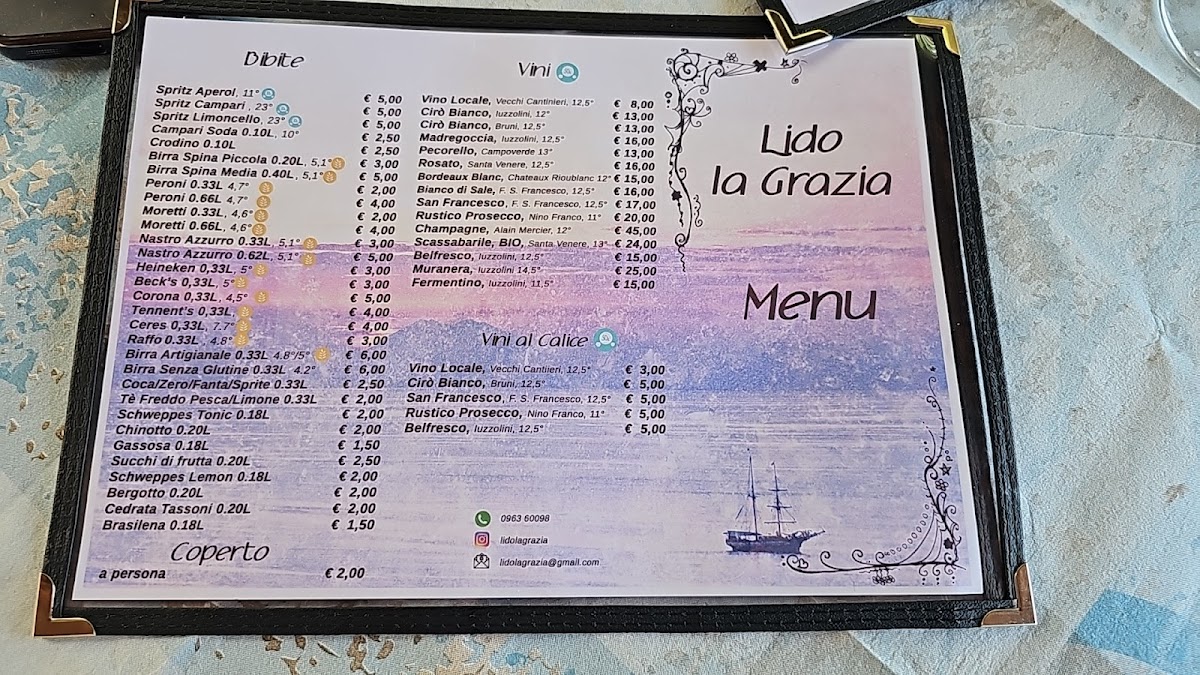 Bibite
Spritz Aperol, 11° € 5,00
Spritz Campari , 23° € 5,00
Spritz Limoncello, 23° € 5,00
Campari Soda 0.10L, 10° € 2,50
Crodino 0.10L € 2,50
Birra Spina Piccola 0.20L, 5,1° € 3,00
Birra Spina Media 0.40L, 5,1° € 5,00
Peroni 0.33L 4,7° € 2,00
Peroni 0.66L 4,7° € 4,00
Moretti 0.33L, 4,6° € 2,00
Moretti 0.66L, 4,6° € 4,00
Nastro Azzurro 0.33L, 5,1° € 3,00
Nastro Azzurro 0.62L, 5,1° € 5,00
Heineken 0,33L, 5° € 3,00
Beck's 0,33L, 5° € 3,00
Corona 0,33L, 4,5° € 5,00
Tennent's 0,33L, € 4,00
Ceres 0,33L, 7.7° € 4,00
Raffo 0.33L , 4.8° € 3,00
Birra Artigianale 0.33L 4.8°/5° € 6,00
Birra Senza Glutine 0.33L 4.2° € 6,00
Coca/Zero/Fanta/Sprite 0.33L € 2,50
Tè Freddo Pesca/Limone 0.33L € 2,00
Schweppes Tonic 0.18L € 2,00
Chinotto 0.20L € 2,00
Gassosa 0.18L € 1,50
Succhi di frutta 0.20L € 2,50
Schweppes Lemon 0.18L € 2,00
Bergotto 0.20L € 2,00
Cedrata Tassoni 0.20L € 2,00
Brasilena 0.18L € 1,50
Coperto
a persona € 2,00
Vini
Vino Locale, Vecchi Cantinieri, 12,5° € 8,00
Cirò Bianco, Iuzzolini, 12° € 13,00
Cirò Bianco, Bruni, 12,5° € 13,00
Madregoccia, Iuzzolini, 12,5° € 16,00
Pecorello, Campoverde 13° € 13,00
Rosato, Santa Venere, 12,5° € 16,00
Bordeaux Blanc, Chateaux Rioublanc 12° € 15,00
Bianco di Sale, F. S. Francesco, 12,5° € 16,00
San Francesco, F. S. Francesco, 12,5° € 17,00
Rustico Prosecco, Nino Franco, 11° € 20,00
Champagne, Alain Mercier, 12° € 45,00
Scassabarile, BIO, Santa Venere, 13° € 24,00
Belfresco, Iuzzolini, 12,5° € 15,00
Muranera, Iuzzolini 14,5° € 25,00
Fermentino, Iuzzolini, 11,5° € 15,00
Vini al Calice
Vino Locale, Vecchi Cantiieri, 12,5° € 3,00
Cirò Bianco, Bruni, 12,5° € 5,00
San Francesco, F. S. Francesco, 12,5° € 5,00
Rustico Prosecco, Nino Franco, 11° € 5,00
Belfresco, Iuzzolini, 12,5° € 5,00
0963 60098
lidolagrazia
lidolagrazia@gmail.com
Lido
la Grazia
Menu